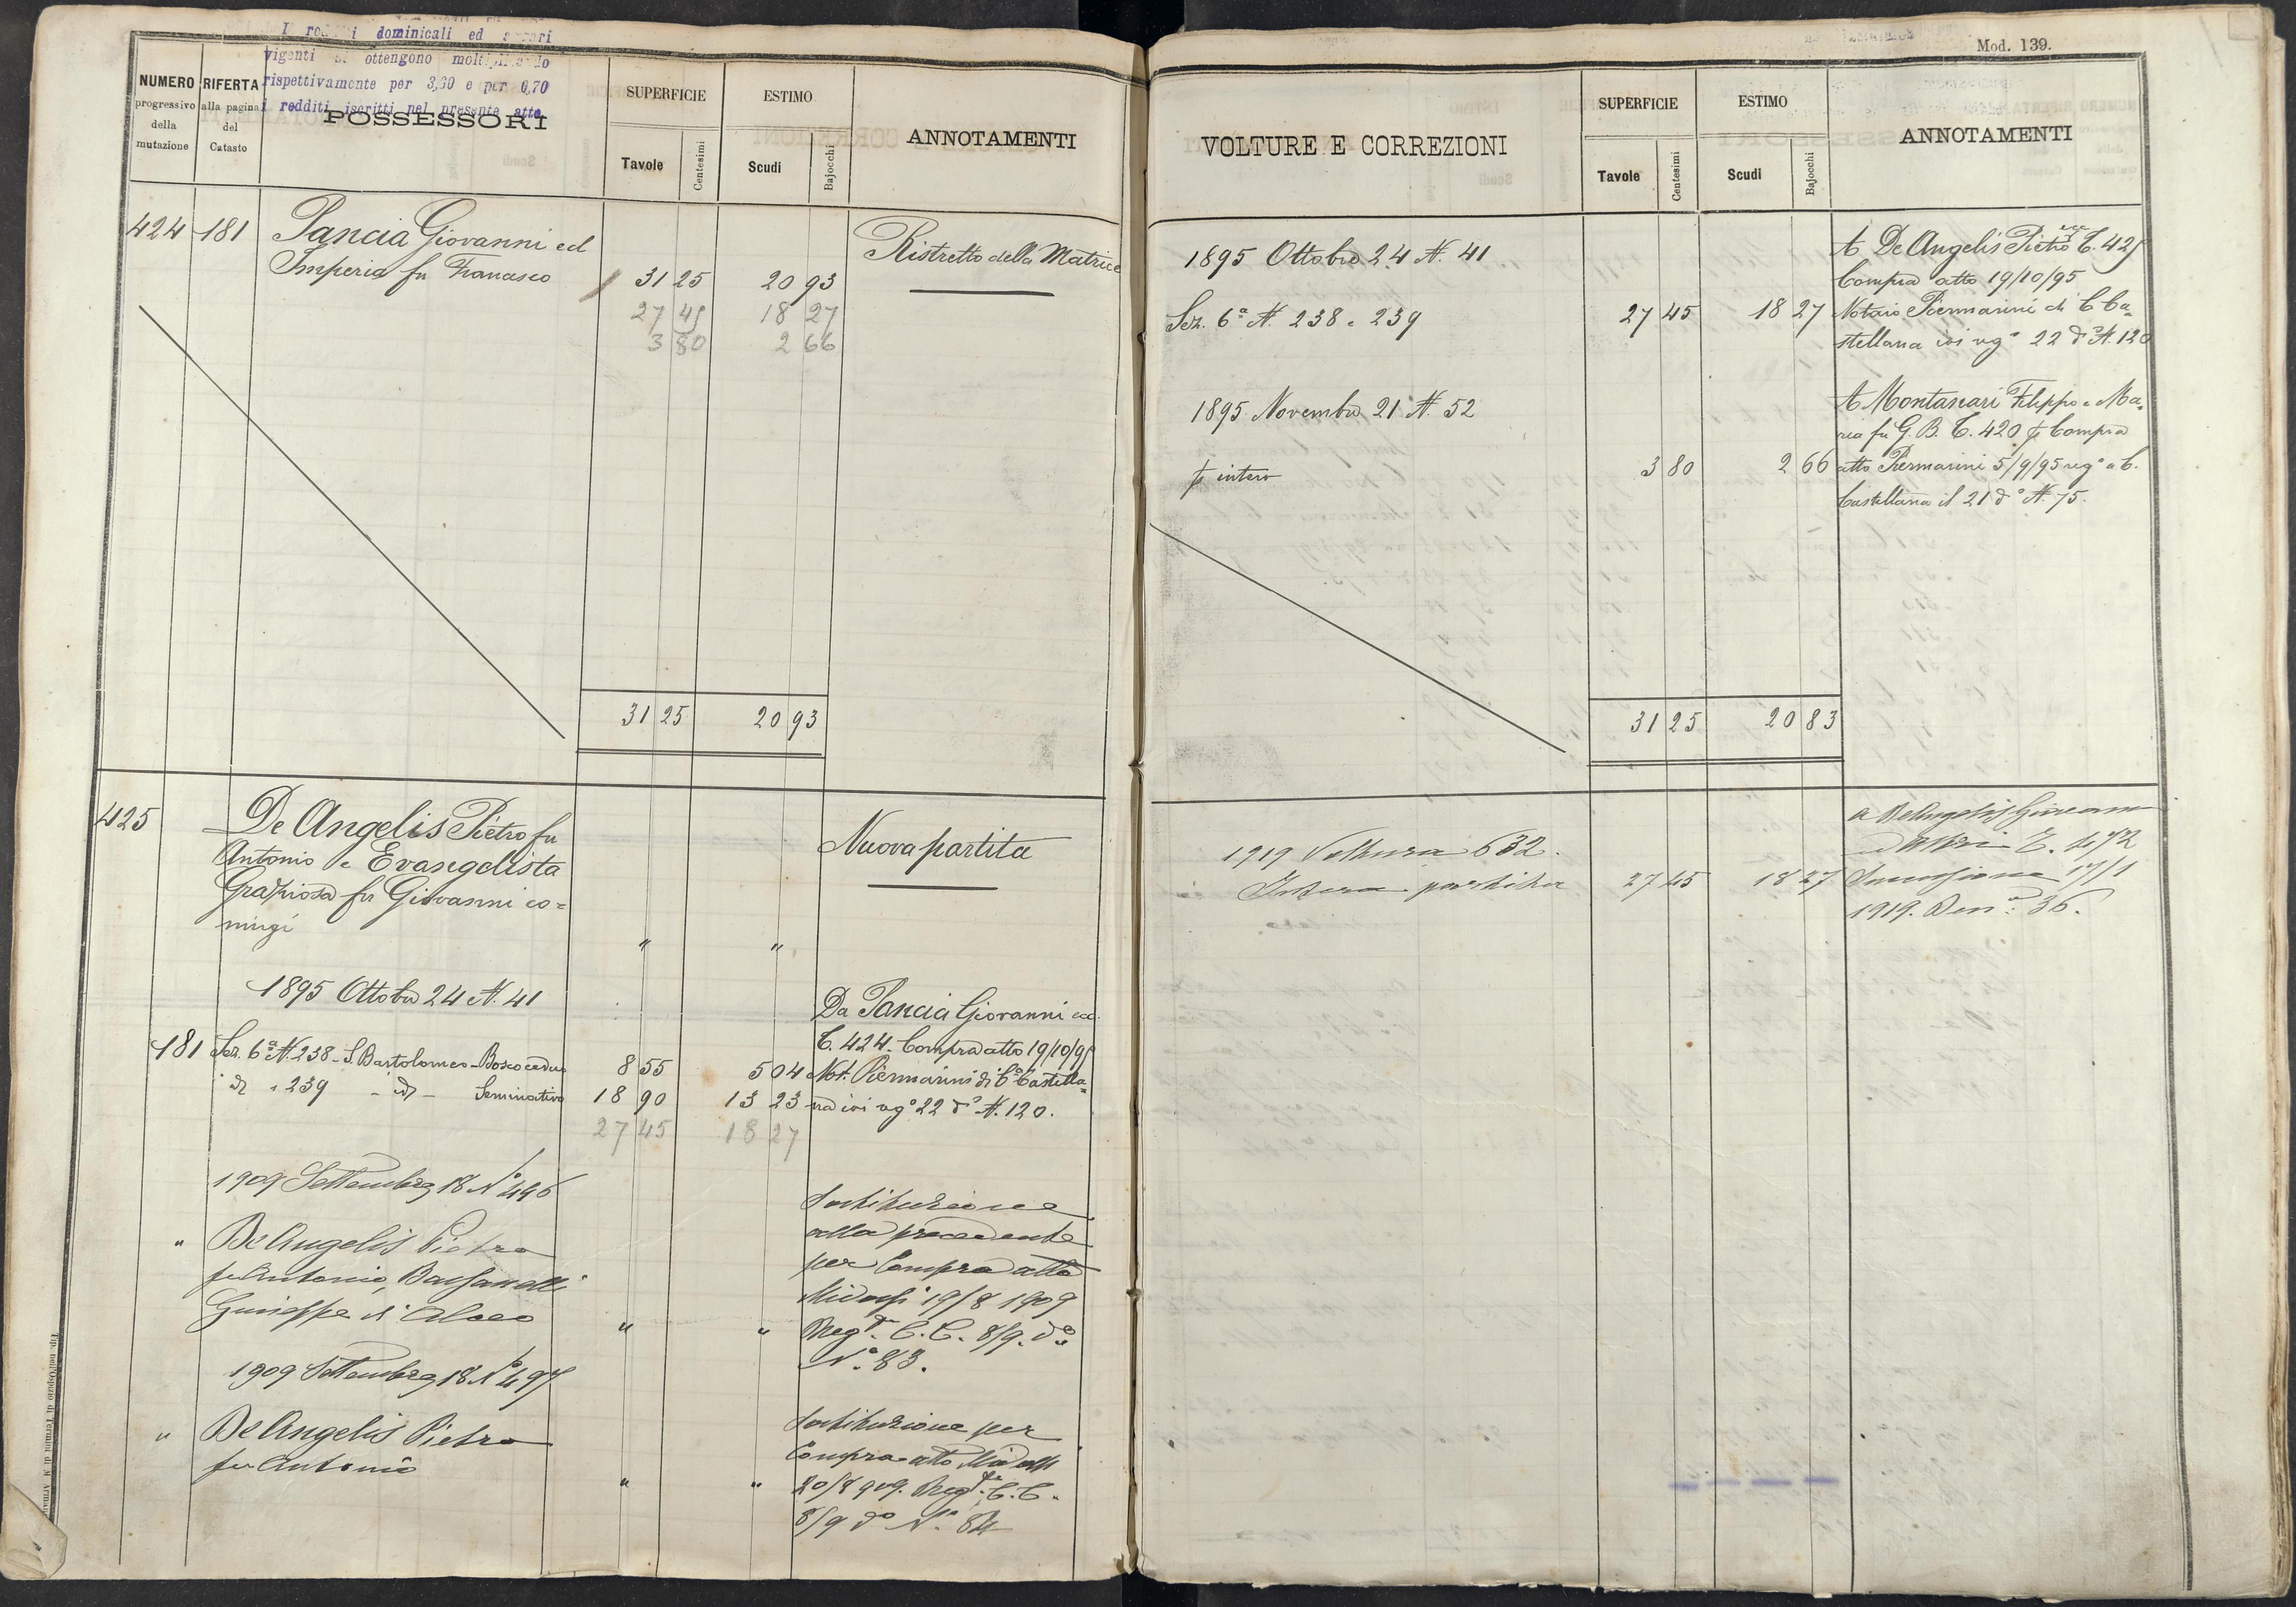 I redditi dominicali ed agrari
vigenti si ottengono moltiplicando
rispettivamente per 3,60 e per 6,70
i redditi iscritti nel presente atto.
NUMERO
progressivo
della
mutazione
RIFERTA
alla pagina
del
Catasto
POSSESSORI
SUPERFICIE
Tavole
Centesimi
ESTIMO
Scudi
Bajocchi
ANNOTAMENTI
424 181 Pancia Giovanni ed
Imperia fu Francesco 31 25 20 93
Ristretto della Matrice
27 45 18 27
3 80 2 66
31 25 20 93
425
De Angelis Pietro fu
Antonio e Evangelista
Graziosa fu Giovanni co=
niugi
" "
Nuova partita
1895 Ottobre 24 N. 41
181 Sez. 6ª N. 238 - S. Bartolomeo - Bosco ceduo 8 55 5 04
id " 239 - id - Seminativo 18 90 13 23
27 45 18 27
Da Pancia Giovanni ecc.
C. 424. Compra atto 19/10/95
Not. Piermarini di Cª Castella=
na ivi regº 22 dº N. 120.
1909 Settembre 18 Nº 496
" De Angelis Pietro
fu Antonio,
Giuseppe di
" "
Sostituzione
alla precedente
per Compra atto
19/8 1909
Reg. C. C. 8/9. dº
Nº. 83.
1909 Settembre 18 Nº 497
" De Angelis Pietro
fu Antonio
" "
Sostituzione per
Compra atto
20/8 909. Reg. C. C.
8/9 dº Nº. 84
Mod. 139.
VOLTURE E CORREZIONI
SUPERFICIE
Tavole
Centesimi
ESTIMO
Scudi
Bajocchi
ANNOTAMENTI
1895 Ottobre 24 N. 41
Sez. 6ª N. 238 e 239 27 45 18 27
A De Angelis Pietro ecc C. 425
Compra atto 19/10/95
Notaio Piermarini di C Ca=
stellana ivi regº 22 dº N. 120
1895 Novembre 21 N. 52
p intero 3 80 2 66
A Montanari Filippo e Ma=
ria fu G. B. C. 420 p Compra
atto Piermarini 5/9/95 regº a C.
Castellana il 21 dº N. 75.
31 25 20 83
1919 Voltura 632.
Intera partita 27 45 18 27
a De Angelis Giovanni
ed Altri C. 472
Successione 17/1
1919. Denª: 36.